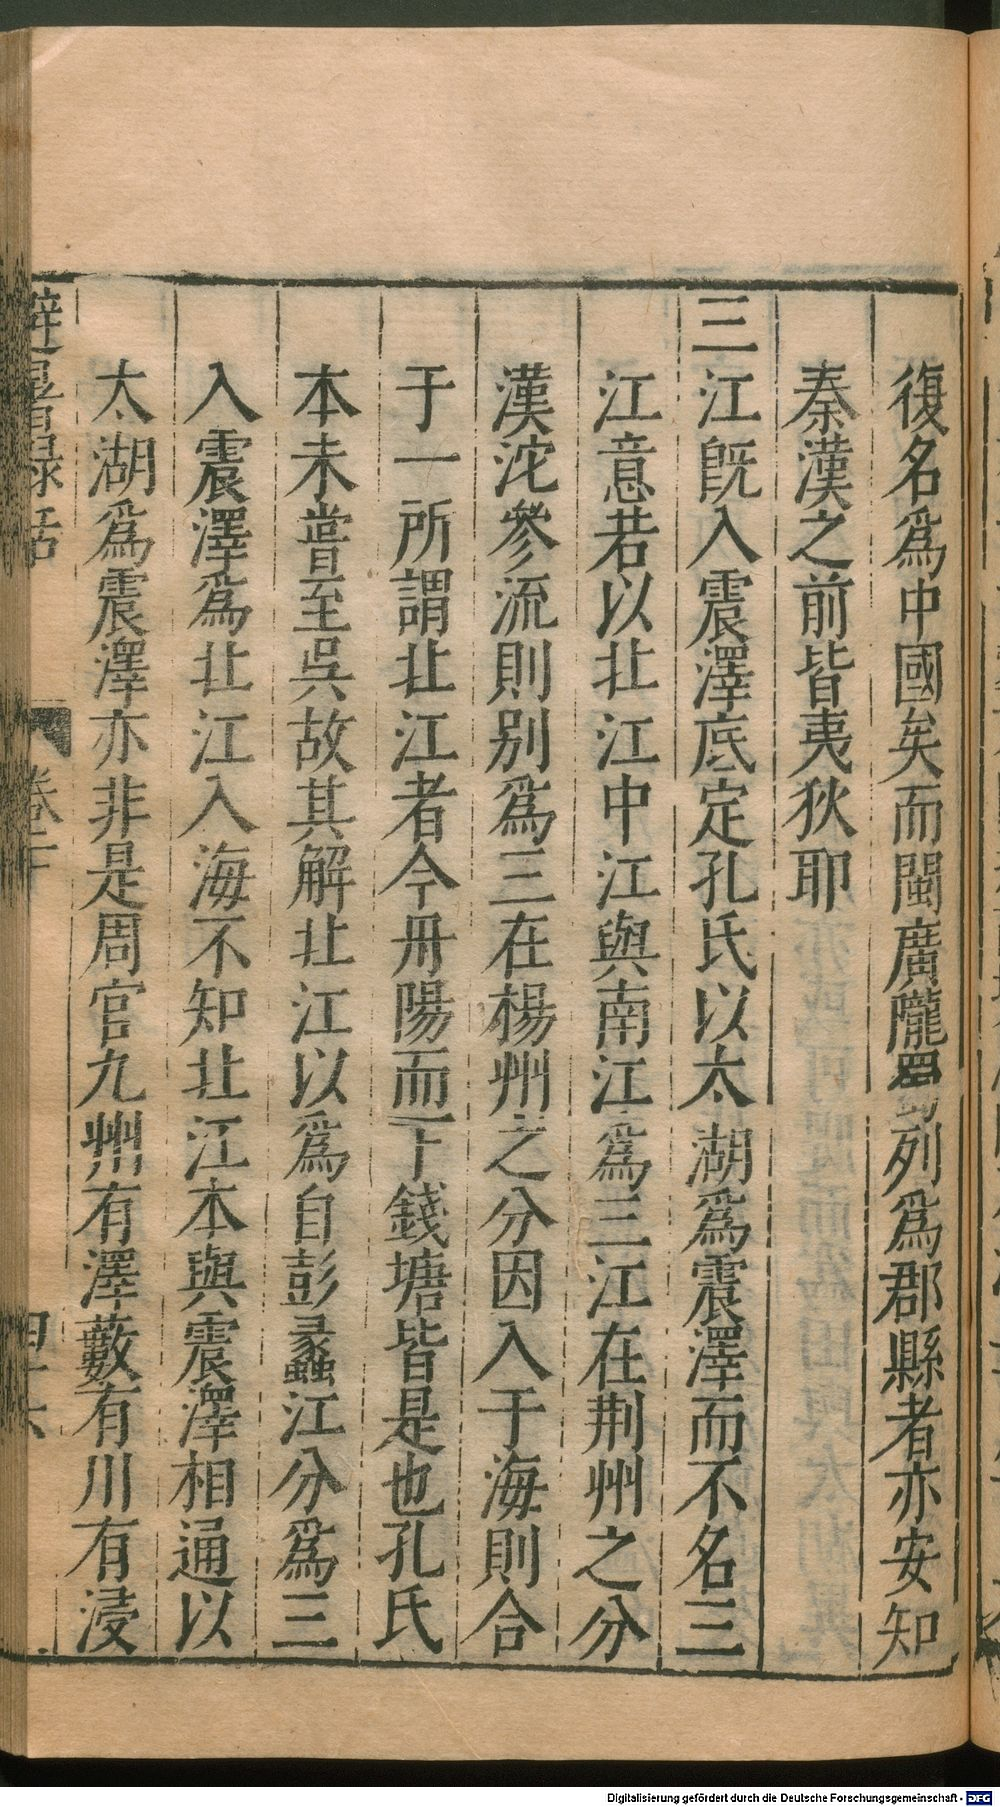 復名爲中國矣而閩廣隴蜀列爲郡縣者亦安知
秦漢之前皆夷狄耶
三江旣入震澤底定孔氏以太湖爲震澤而不名三
江意若以北江中江與南江爲三江在荆州之分
漢沱參流則别爲三在楊州之分因入于海則合
于一所謂北江者今丹陽而下錢塘皆是也孔氏
本未嘗至吳故其解北江以爲自彭蠡江分爲三
入震澤爲北江入海不知北江本與震澤相通以
太湖爲震澤亦非是周官九州有澤藪有川有浸
避暑録話
卷上
四十六
Digitalisierung gefördert durch die Deutsche Forschungsgemeinschaft - DFG